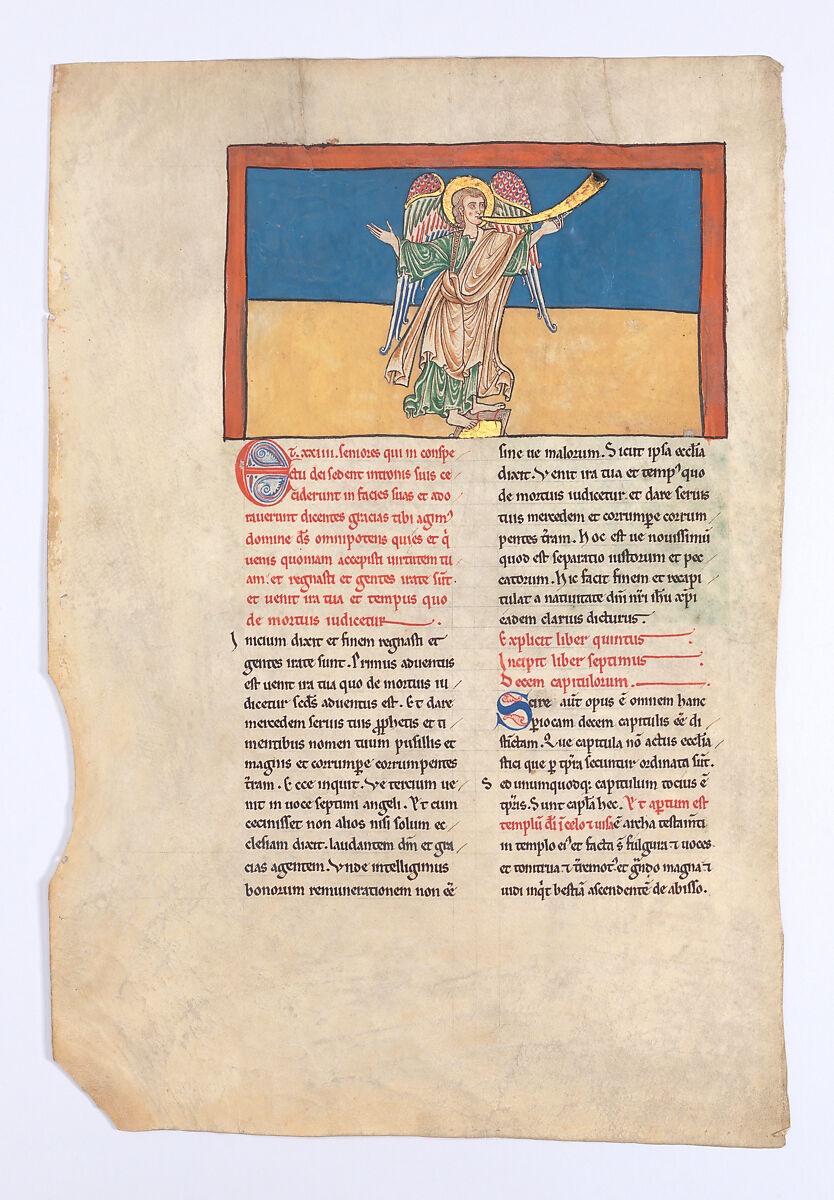 Et. xxiiii. seniores qui in conspe
ctu dei sedent in tronis suis ce
ciderunt in facies suas et ado
raverunt dicentes gracias tibi agim⁹
domine ds̄ omnipotens qui es et q̇
uenis quoniam accepisti uirtutem tu
am. et regnasti et gentes irate sūt.
et uenit ira tua et tempus quo
de mortuis iudicetur.
Inicium dixit et finem regnasti et
gentes irate sunt. Primus aduentus
est uenit ira tua quo de mortuis iu
dicetur scd̄s aduentus est. Et dare
mercedem seruis tuis prophetis et ti
mentibus nomen tuum pusillis et
magnis et corrumpe corrumpentes
t̄ram. Ecce inquit. Ve tercium ue
nit in uoce septimi angeli. Et cum
cecinisset non alios nisi solum ec
clesiam dixit. laudantem dm̄ et gra
cias agentem. Vnde intelligimus
bonorum remunerationem non ēē
sine ue malorum. Sicut ipsa eccl̄ia
dixit. Venit ira tua et temp⁹ quo
de mortuis iudicetur. et dare seruis
tuis mercedem et corrumpe corrum
pentes t̄ram. Hoc est ue nouissimū
quod est separatio iustorum et pec
catorum. Hic facit finem et recapi
tulat a natiuitate dm̄ nr̄i ih̄u xp̄i
eadem clarius dicturus.
Explicit liber quintus
Incipit liber septimus
Decem capitulorum.
Scire aūt opus ē omnem hanc
periocam decem capitulis ēē di
stīctam. Que capitula nō actus eccl̄ia
stici que p t̄pr̄a secuntur ordinata sūt.
Sed unumquodq; capitulum tocius ē
t̄pr̄is. Sunt caps̄a hec. Et aptum est
templū dī ī celo & uisa ē archa testam̄ti
in templo ei⁹ et facta s̄ fulgura & uoces
et tonitrua & t̄remot⁹ et g̊ndo magna &
uidi inq̇t bestiā ascendentē de abisso.